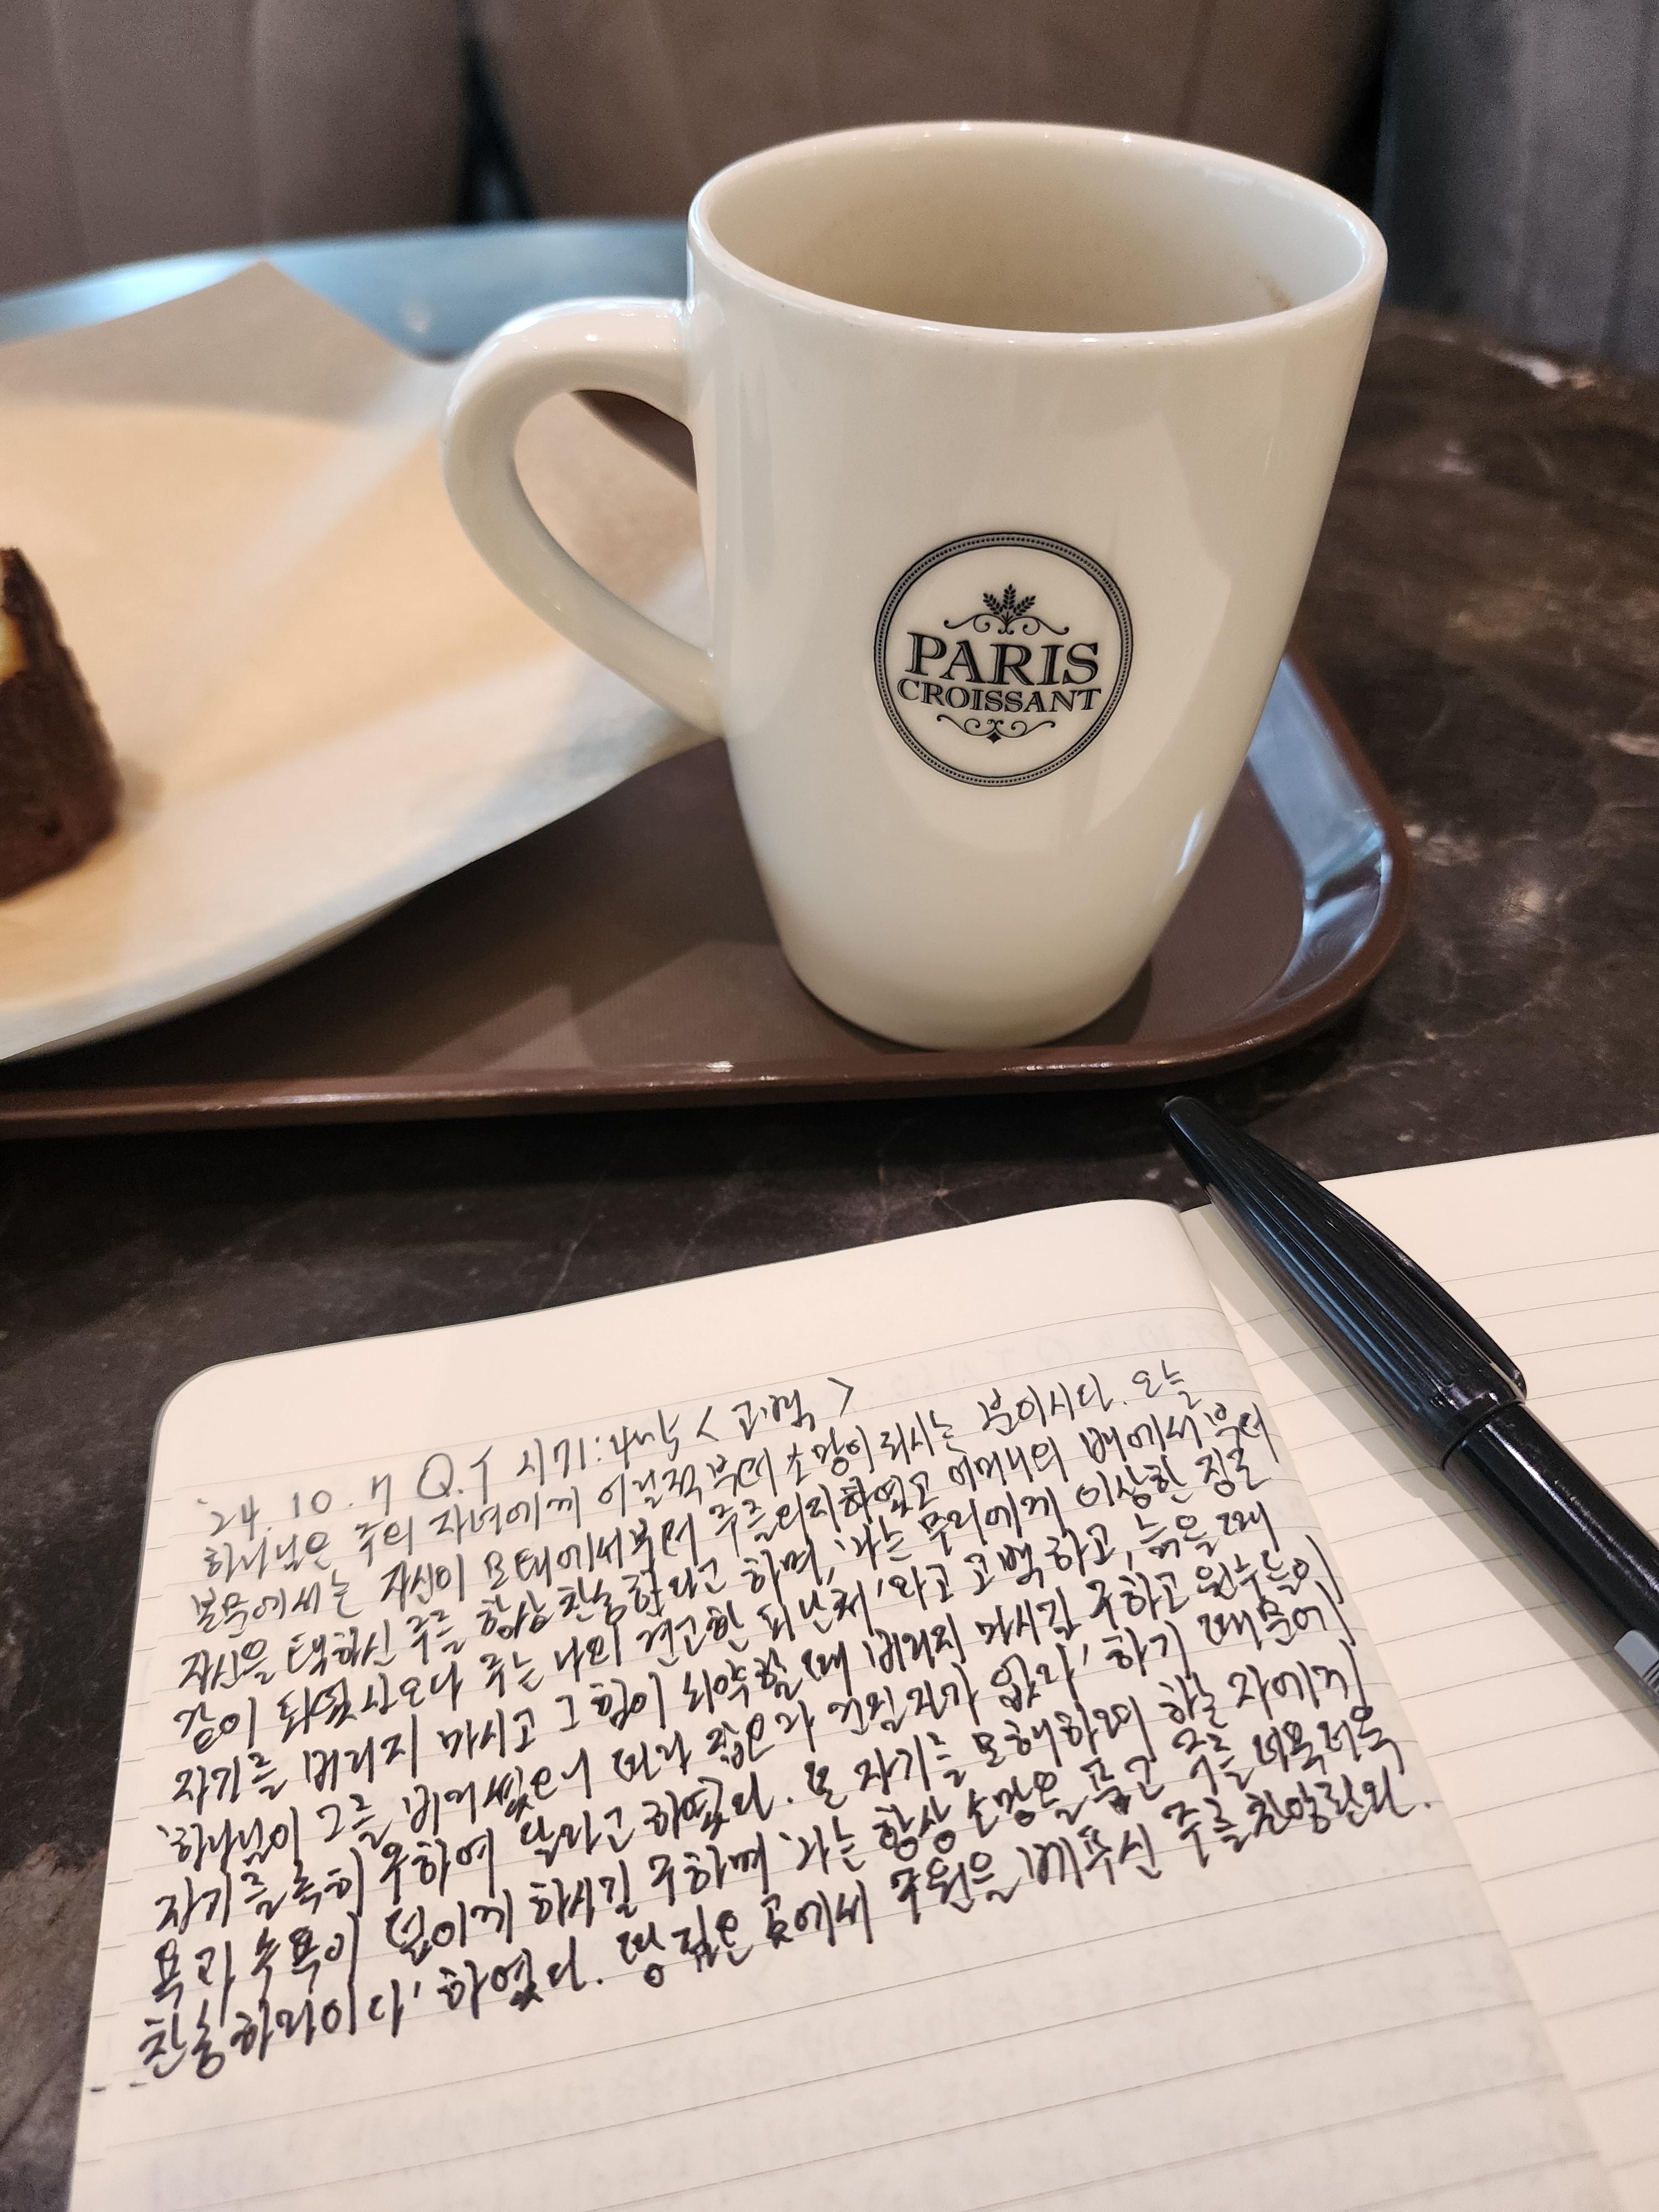 PARIS
CROISSANT
'24. 10. 7 Q.T 시71:4내눅 < 고백 >
하나님은 주의 자녀에게 어릴적부터 소망이 되시는 분이시다. 오늘
본문에서는 자신이 모태에서부터 주를 의지하였고 어머니의 배에서부터
자신을 택하신 주를 항상 찬송한다고 하며, '나는 무리에게 이상한 징조
같이 되었사오나 주는 나의 견고한 피난처'라고 고백하고, 늙을 때
자기를 버리지 마시고 그 힘이 쇠약할 때 버리지 마시길 구하고 원수들이
'하나님이 그를 버리셨으니 따라 잡으라 건질 자가 없다' 하기 때문에
자기를 속히 우하여 달라고 하였다. 또 자기를 모해하려 하는 자에게
욕과 수욕이 덮이게 하시길 구하며 '나는 항상 소망을 품고 주를 더욱더욱
찬송하리이다' 하였다. 땅 깊은 곳에서 구원을 베푸신 주를 찬양한다.